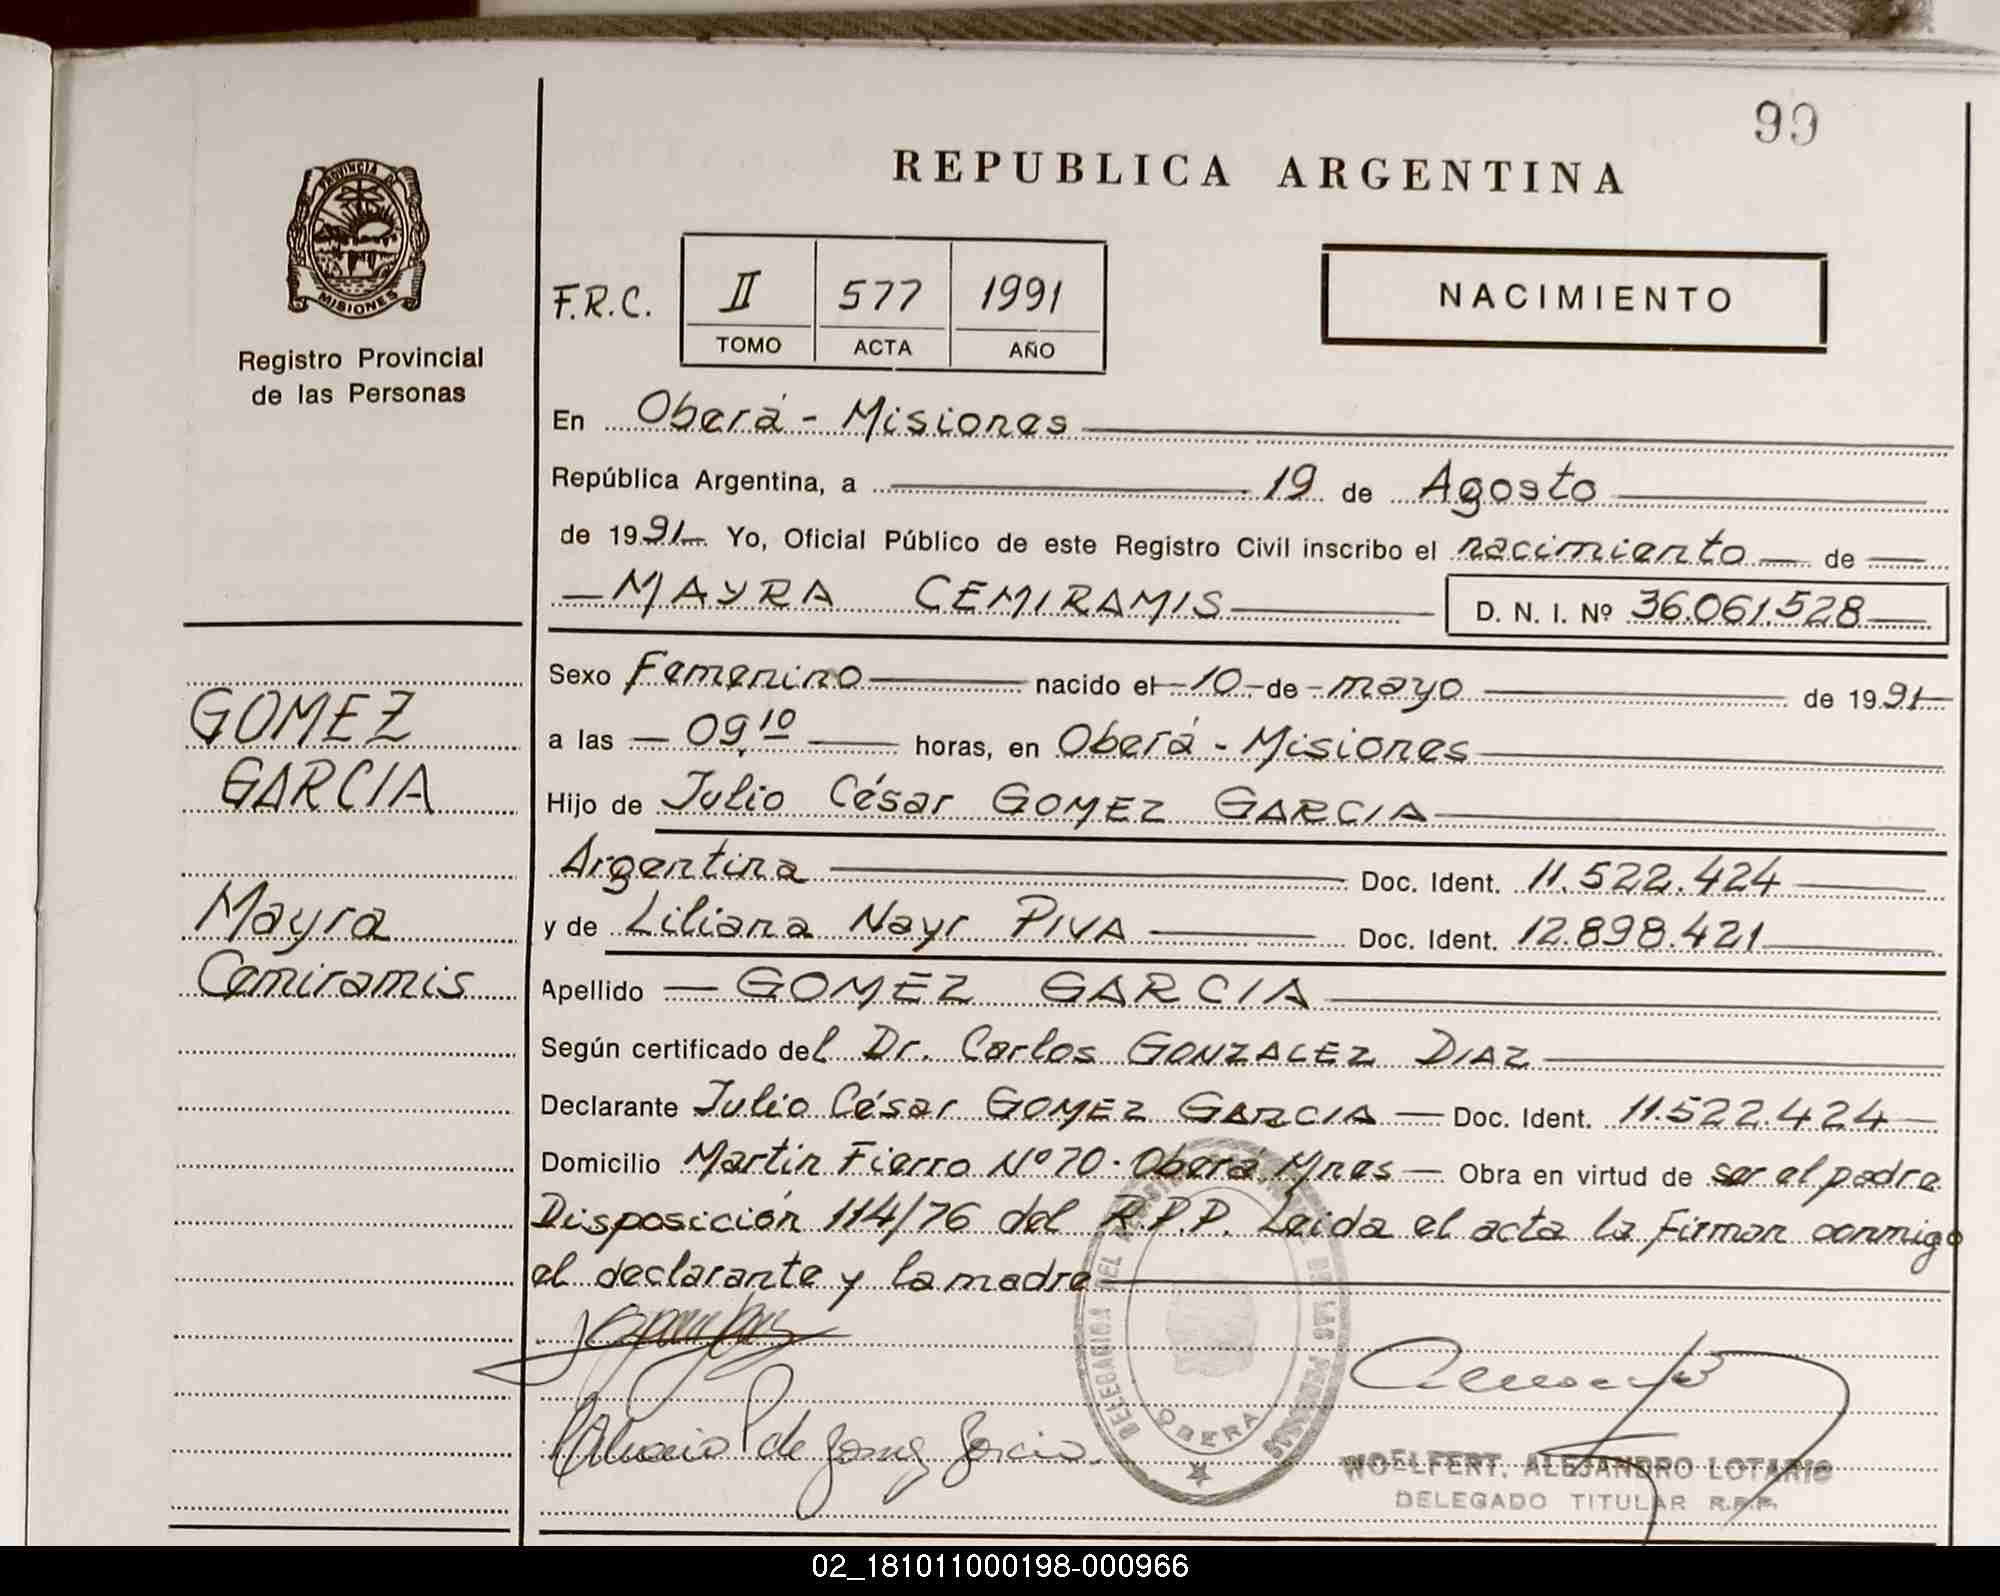 99
REPUBLICA ARGENTINA
PROVINCIA DE
MISIONES
Registro Provincial
de las Personas
F.R.C.
II 577 1991
TOMO ACTA AÑO
NACIMIENTO
En Oberá - Misiones
República Argentina, a 19 de Agosto
de 1991 Yo, Oficial Público de este Registro Civil inscribo el nacimiento de
MAYRA CEMIRAMIS D. N. I. Nº 36.061.528
GOMEZ
GARCIA
Mayra
Cemiramis
Sexo Femenino nacido el 10 de mayo de 1991
a las 09,10 horas, en Oberá - Misiones
Hijo de Julio César GOMEZ GARCIA
Argentina Doc. Ident. 11.522.424
y de Liliana Nayr PIVA Doc. Ident. 12.898.421
Apellido GOMEZ GARCIA
Según certificado del Dr. Carlos GONZALEZ DIAZ
Declarante Julio César GOMEZ GARCIA Doc. Ident. 11.522.424
Domicilio Martín Fierro Nº 70 - Oberá, Mnes Obra en virtud de ser el padre
Disposición 114/76 del R.P.P. Leida el acta la firman conmigo
el declarante y la madre
DELEGACION DEL DE LAS PERSONAS
OBERA
de Gomez Garcia
WOELFERT, ALEJANDRO LOTARIO
DELEGADO TITULAR R.P.P.
02_181011000198-000966